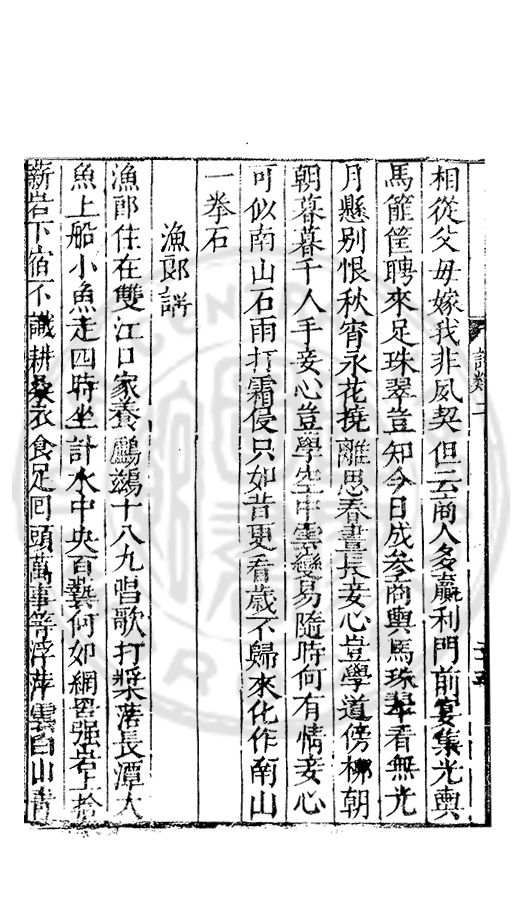 相從父母嫁我非夙契但云商人多贏利門前宴集光輿
馬篚筐聘來足珠翠豈知今日成參商輿馬珠翠看無光
月懸別恨秋宵永花撓離思春晝長妾心豈學道傍柳朝
朝暮暮千人手妾心豈學空中雲變易隨時何有情妾心
可似南山石雨打霜侵只如昔更看歲不歸來化作南山
一拳石
漁郎謌
漁郎住在雙江口家養鸕鷀十八九唱歌打槳落長潭大
魚上船小魚走四時坐計水中央百藝何如網罟强岩上拾
薪岩下宿不識耕桑衣食足回頭萬事等浮萍雲白山青